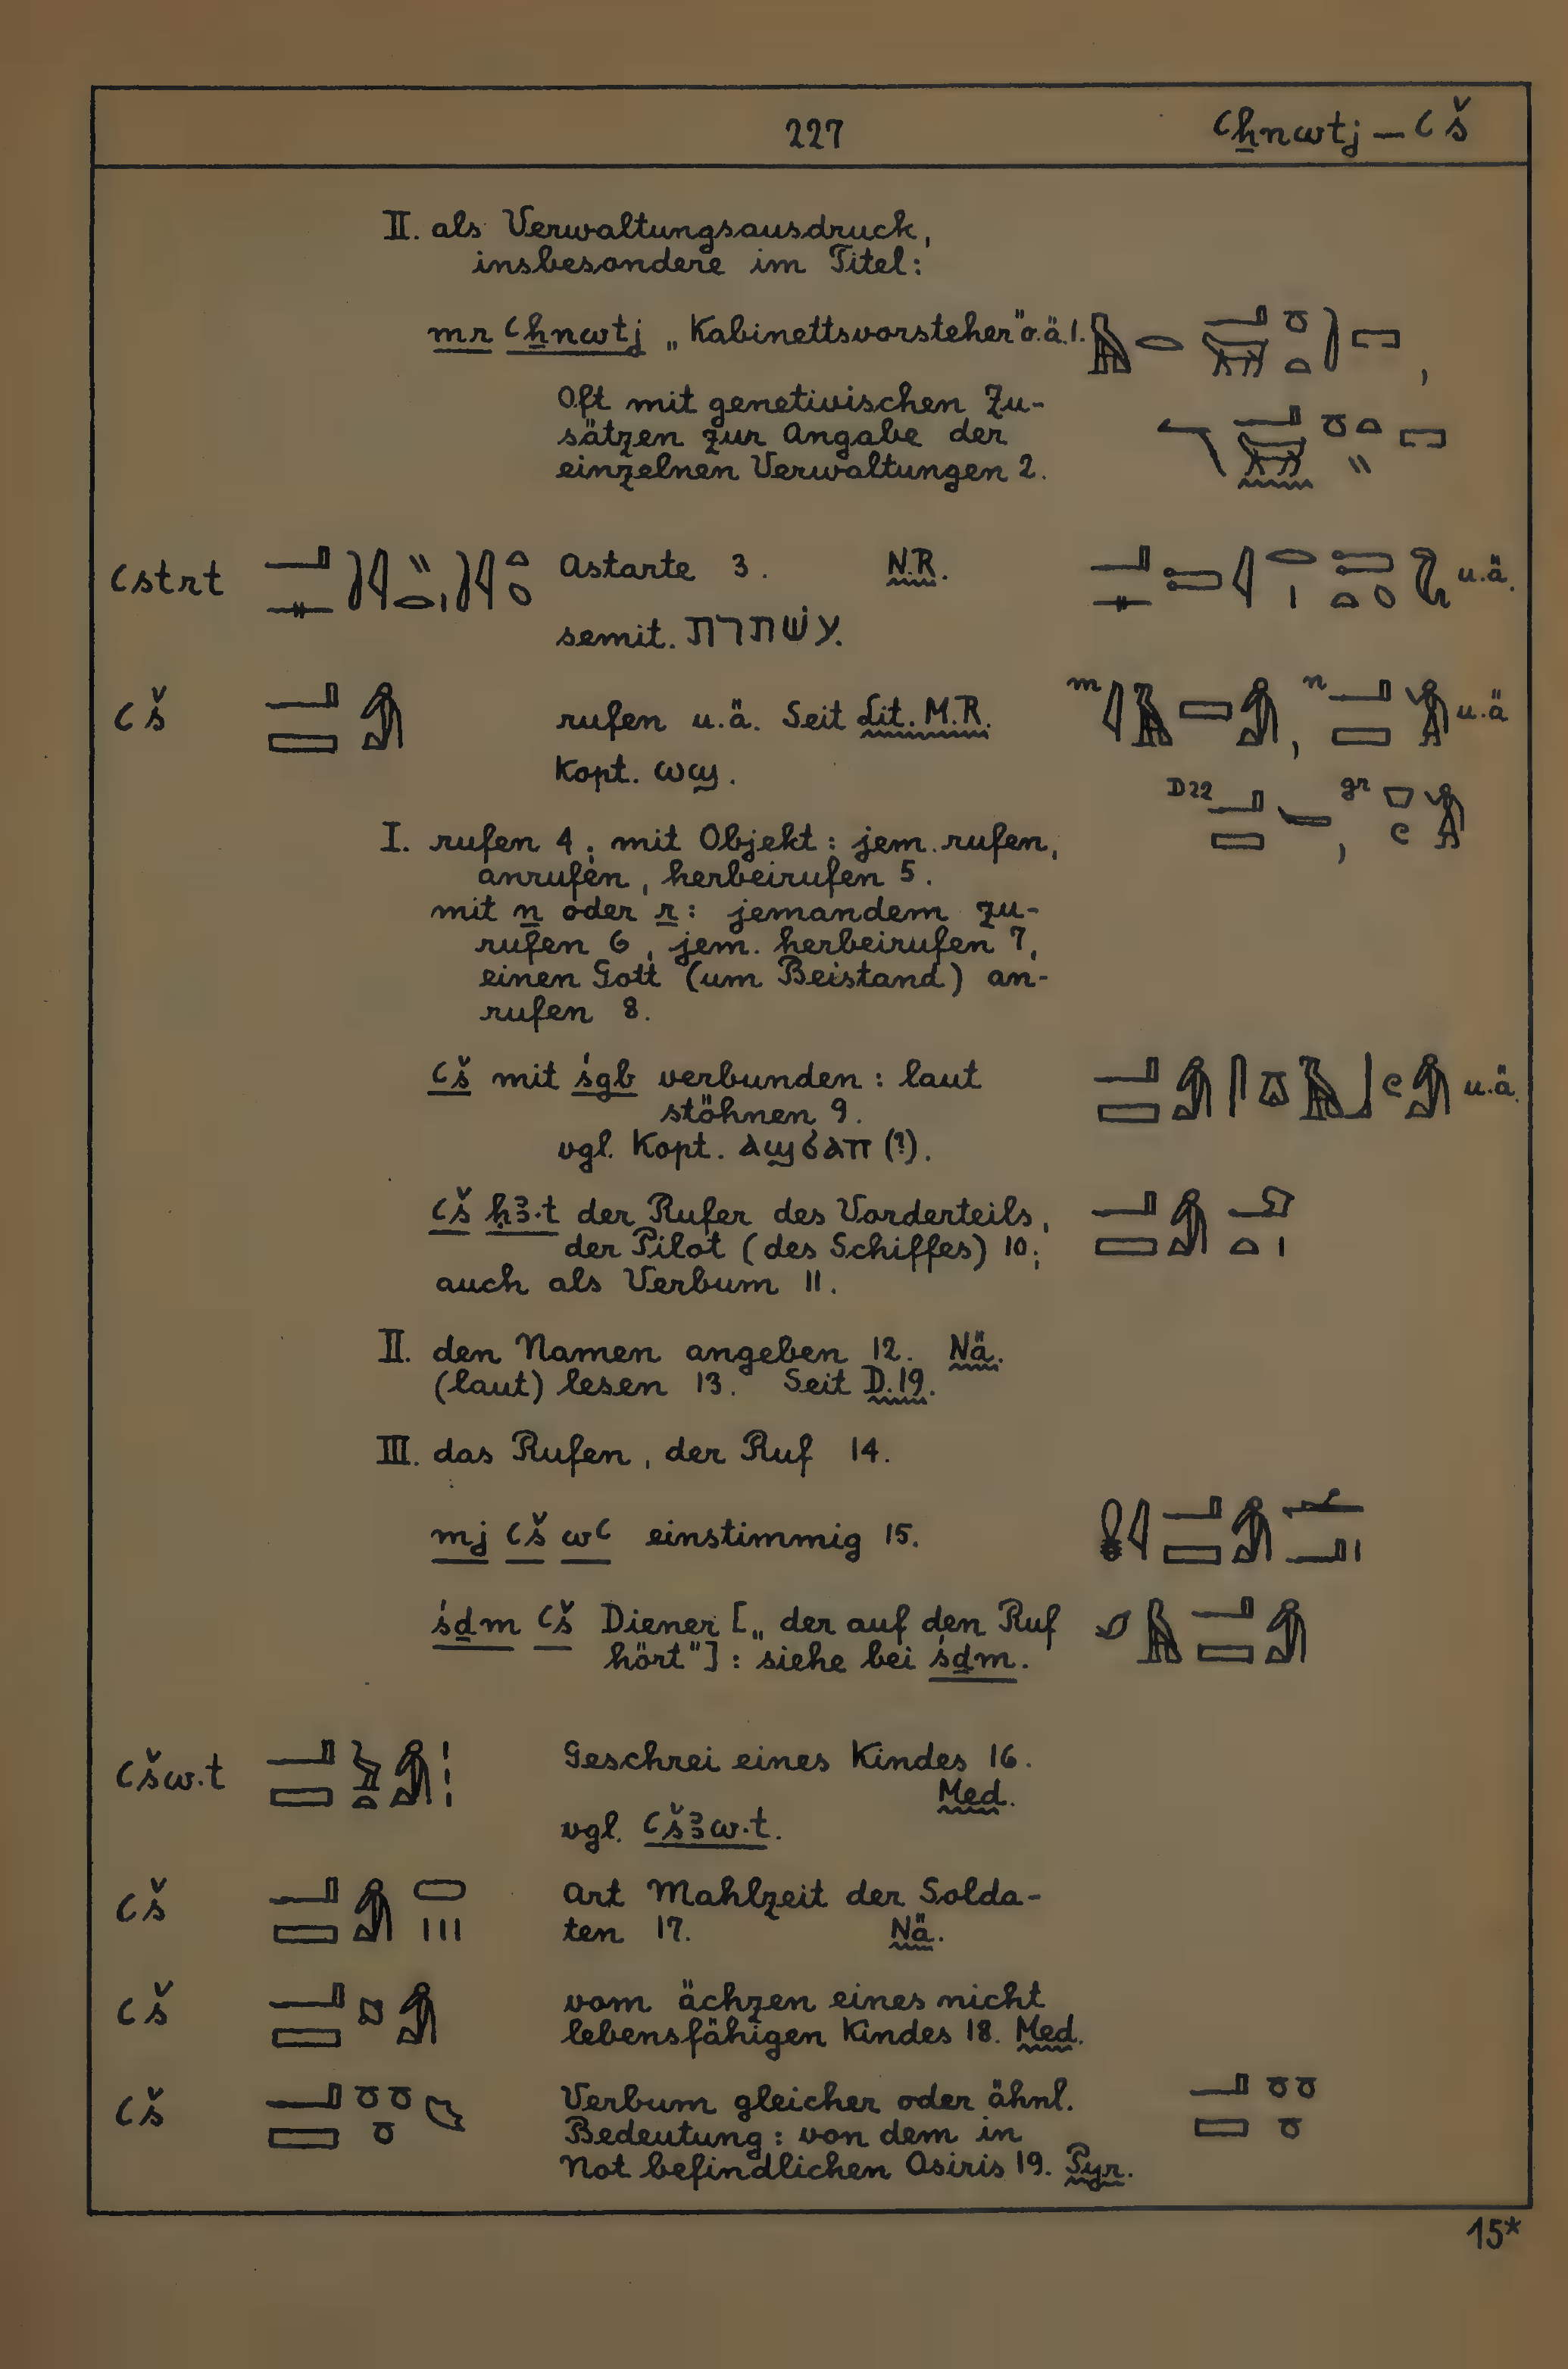 227
ꜥẖnwtj – ꜥš
II. als Verwaltungsausdruck,
insbesondere im Titel:
mr ꜥẖnwtj „Kabinettsvorsteher" o.ä. 1.
Oft mit genetivischen Zu-
sätzen zur Angabe der
einzelnen Verwaltungen 2.
ꜥstrt Astarte 3. N.R. u.ä.
semit. עשׁתרת.
ꜥš rufen u.ä. Seit Lit. M.R. m , n u.ä
Kopt. ⲱϣ.
D22 , gr
I. rufen 4; mit Objekt: jem. rufen,
anrufen, herbeirufen 5.
mit n oder r: jemandem zu-
rufen 6, jem. herbeirufen 7,
einen Gott (um Beistand) an-
rufen 8.
ꜥš mit śgb verbunden: laut u.ä.
stöhnen 9.
vgl. Kopt. ⲁϣϭⲁⲡ (?).
ꜥš ḥꜣ.t der Rufer des Vorderteils,
der Pilot (des Schiffes) 10;
auch als Verbum 11.
II. den Namen angeben 12. Nä.
(laut) lesen 13. Seit D.19.
III. das Rufen, der Ruf 14.
mj ꜥš wꜥ einstimmig 15.
śḏm ꜥš Diener [„der auf den Ruf
hört"]: siehe bei śḏm.
ꜥšw.t Geschrei eines Kindes 16.
Med.
vgl. ꜥšꜣw.t.
ꜥš Art Mahlzeit der Solda-
ten 17. Nä.
ꜥš vom ächzen eines nicht
lebensfähigen Kindes 18. Med.
ꜥš Verbum gleicher oder ähnl.
Bedeutung: von dem in
Not befindlichen Osiris 19. Pyr.
15*